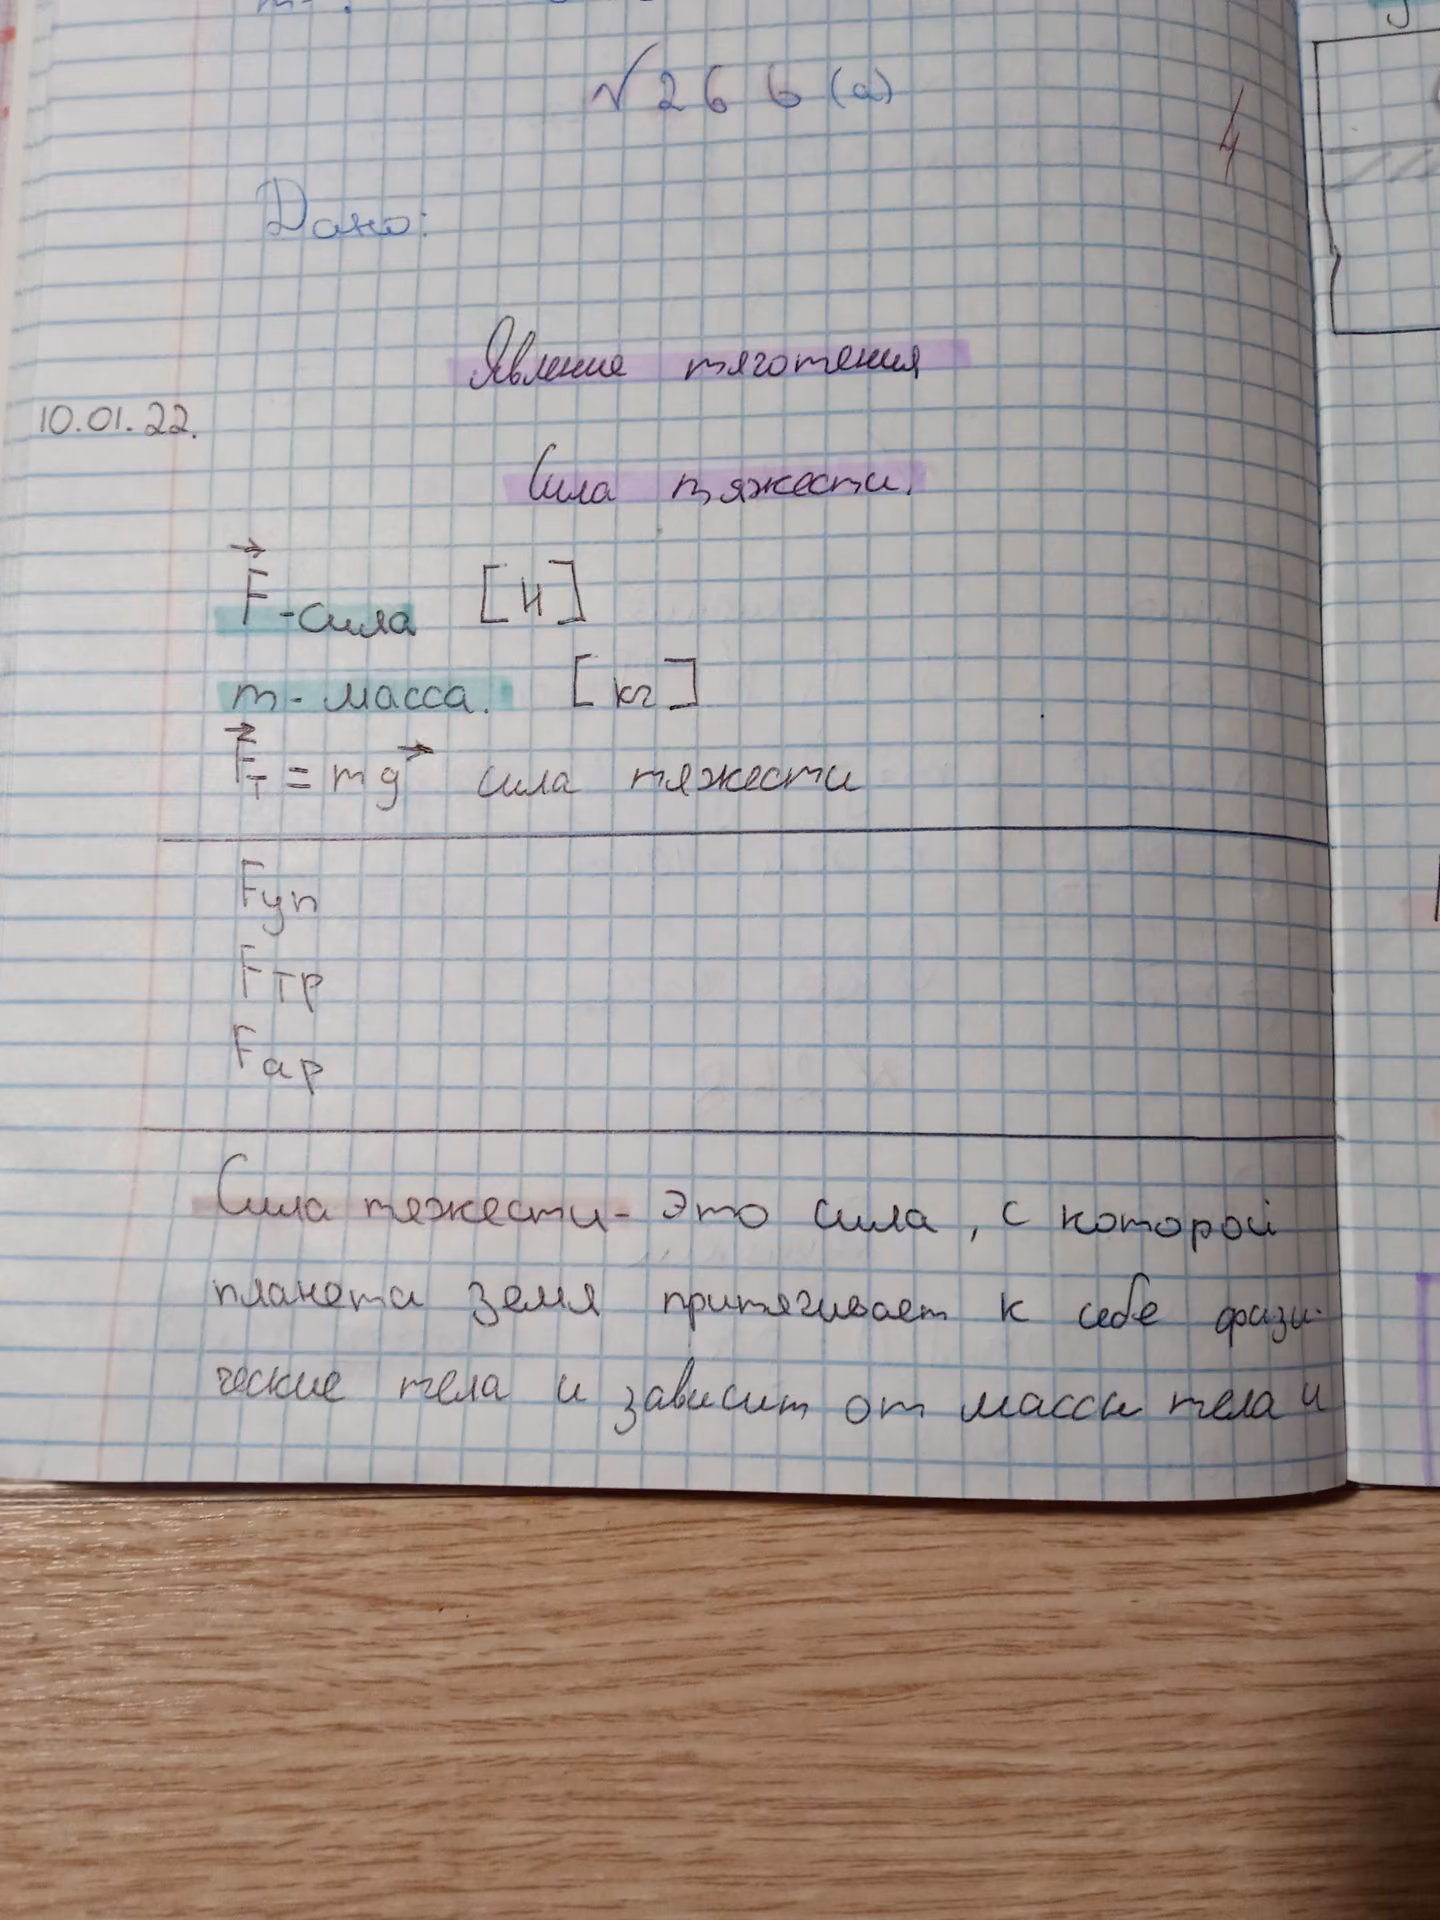 √266(а)
4
Дано:
Явление тяготения
10.01.22.
Сила тяжести.
F⃗-сила [Н]
m-масса. [кг]
F⃗т = mg⃗ сила тяжести
Fуп
Fтр
Fар
Сила тяжести- это сила, с которой
планета земля притягивает к себе физи-
ческие тела и зависит от массы тела и